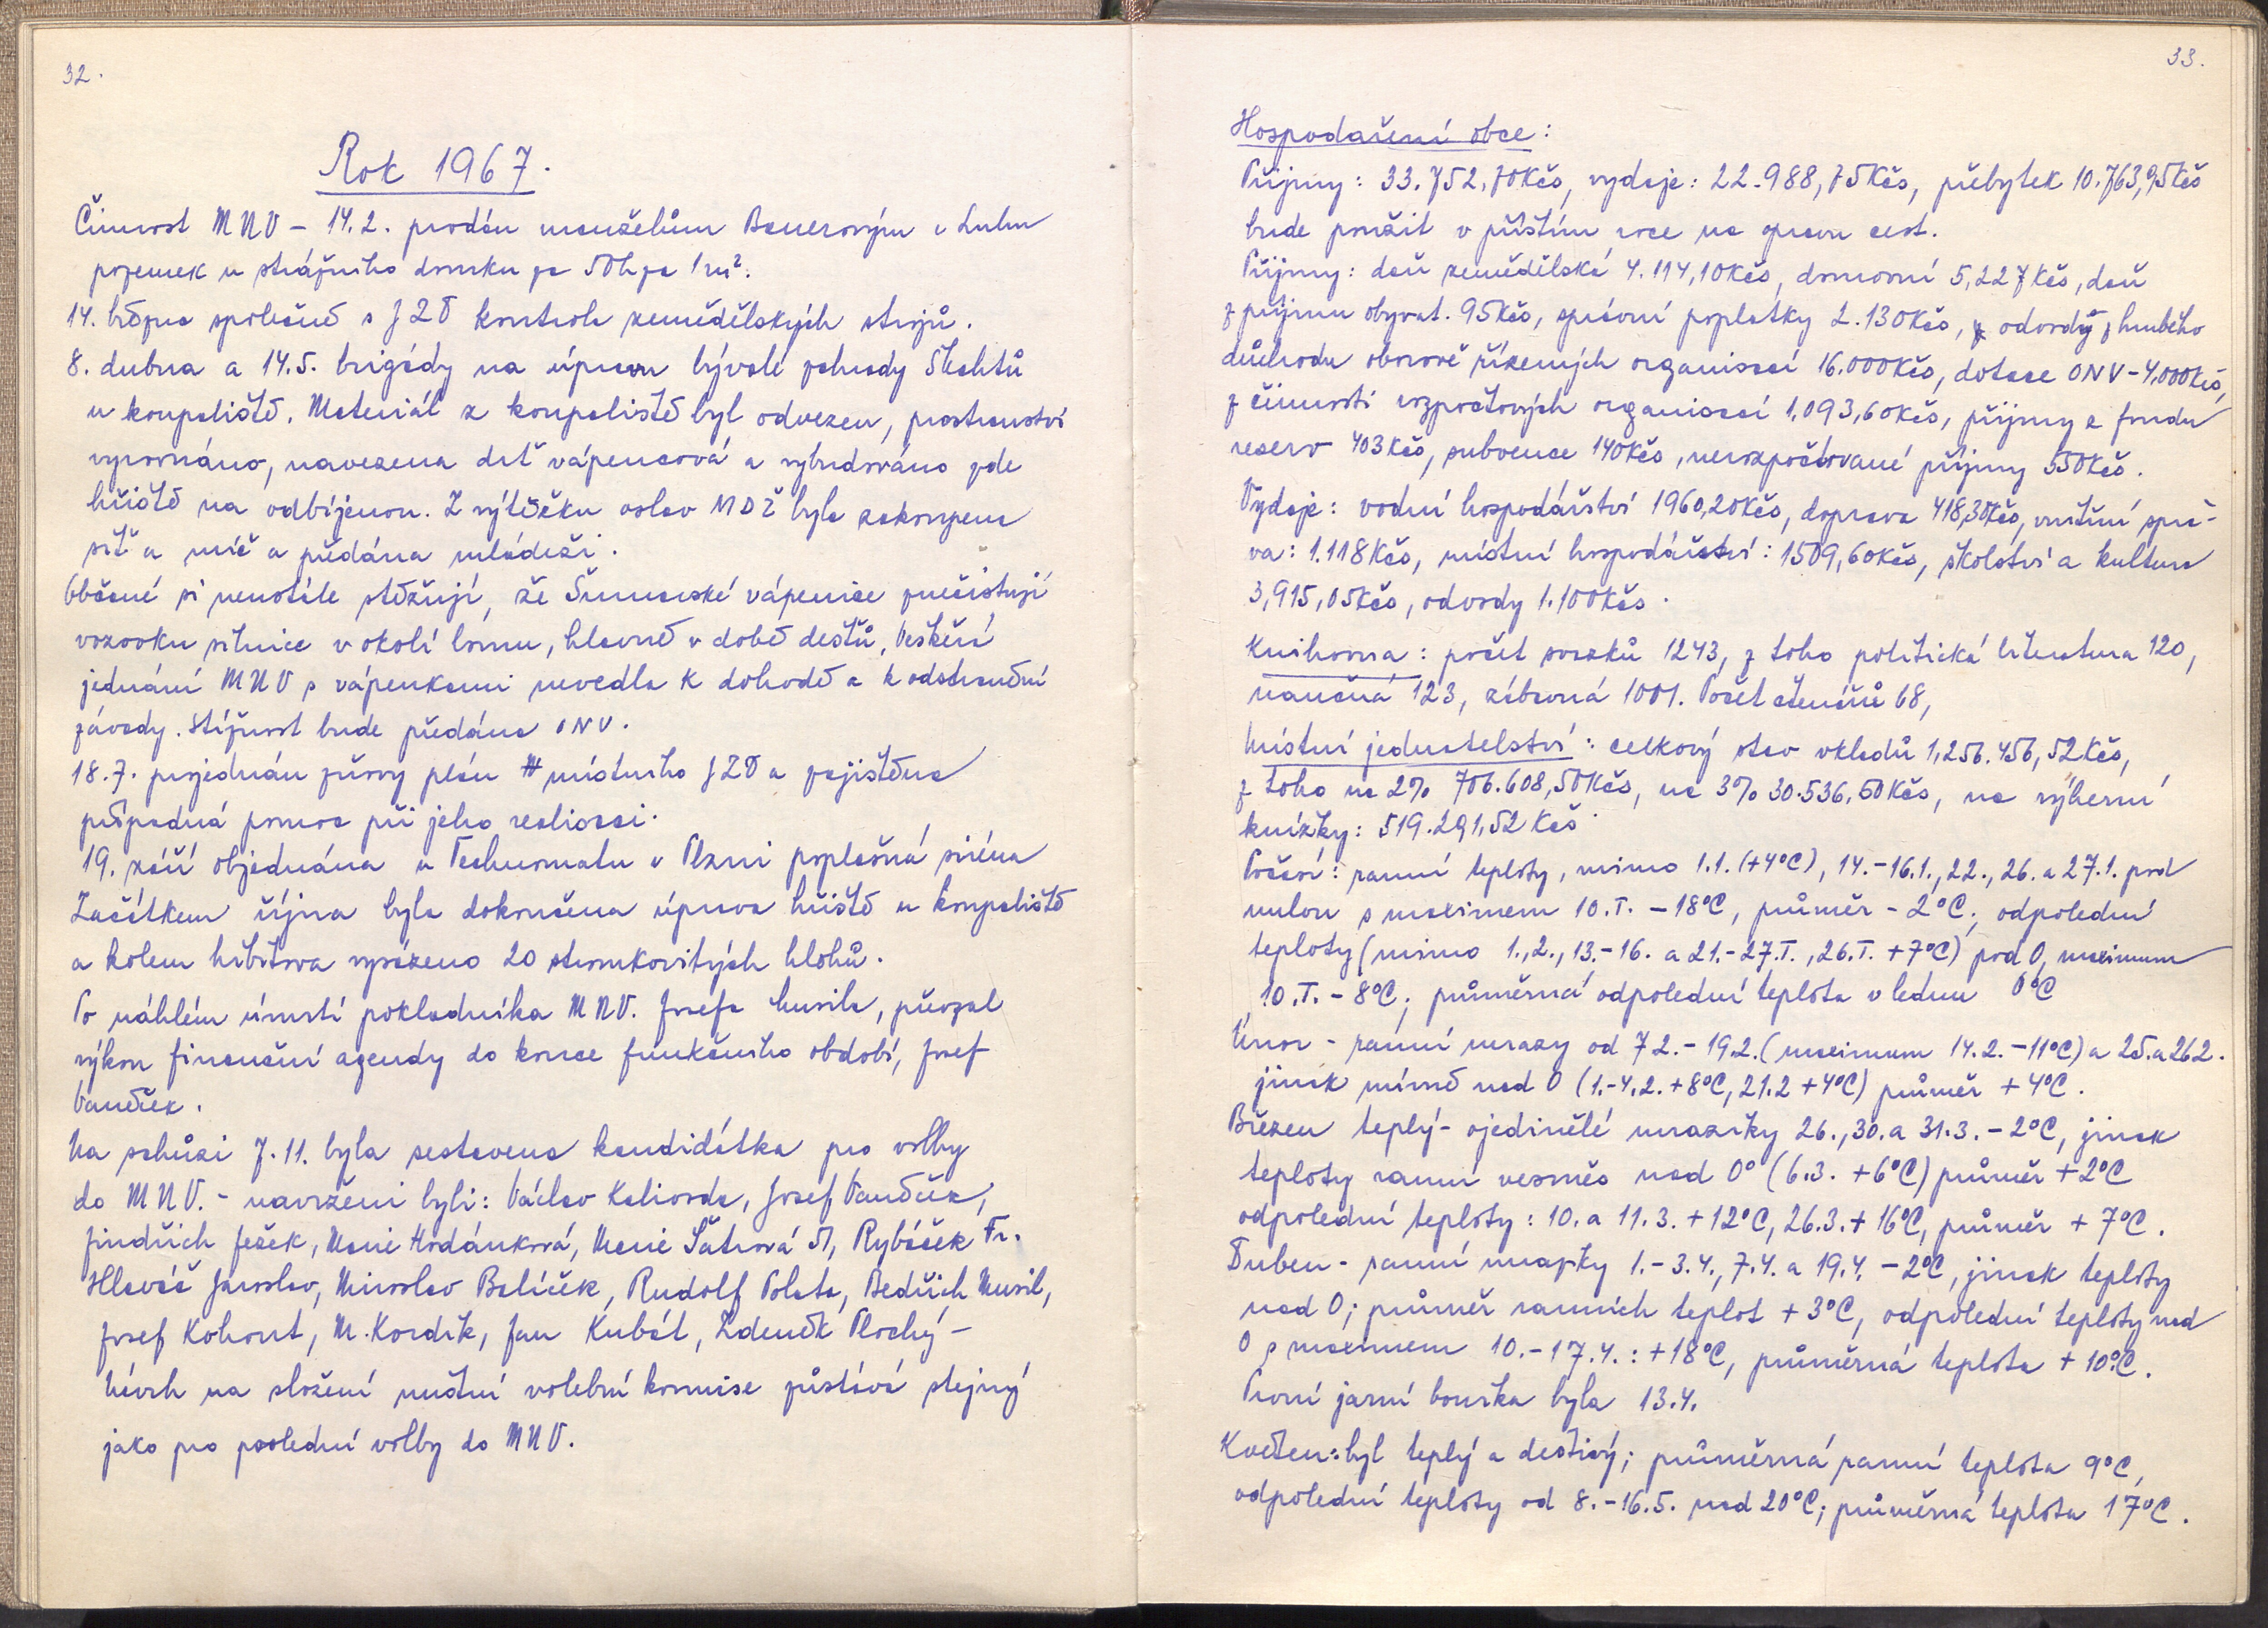 32.
Rok 1967.
Činnost MNV – 14.2. prodán manželům Bauerovým v Luhu
pozemek u strážního domku za 50h za 1 m².
14. března společně s JZD kontrola zemědělských strojů.
8. dubna a 14.5. brigády na úpravu bývalé zahrady Šlechtů
u koupaliště. Materiál z koupaliště byl odvezen, prostranství
vyrovnáno, navezena drť vápencová a vybudováno zde
hřiště na odbíjenou. Z výtěžku oslav MDŽ byla zakoupena
síť a míč a předána mládeži.
Občané si neustále stěžují, že Šumavské vápenice znečistují
vozovku silnice v okolí lomu, hlavně v době dešťů. Veškerá
jednání MNV s vápenkami nevedla k dohodě a k odstranění
závady. Stížnost bude předána ONV.
18.7. projednán žňový plán místního JZD a zajištěna
případná pomoc při jeho realisaci.
19. září objednána u Technomatu v Plzni poplašná siréna
Začátkem října byla dokončena úprava hřiště u koupaliště
a kolem hřbitova vysázeno 20 stromkovitých hlohů.
Po náhlém úmrtí pokladníka MNV. Josefa Musila, převzal
výkon finanční agendy do konce funkčního období, Josef
Vaněček.
Na schůzi 7.11. byla sestavena kandidátka pro volby
do MNV. - navrženi byli: Václav Kaliovda, Josef Vaněček,
Jindřich Ježek, Marie Hodánková, Marie Šatrová st, Rybáček Fr.
Hlaváč Jaroslav, Miroslav Balíček, Rudolf Polata, Bedřich Musil,
Josef Kohout, M. Kordík, Jan Kubát, Zdeněk Plochý –
Návrh na složení místní volební komise zůstává stejný
jako pro poslední volby do MNV.
33.
Hospodaření obce:
Příjmy: 33.752,70Kčs, vydaje: 22.988,75Kčs, přebytek 10.763,95Kčs
bude použit v příštím roce na opravu cest.
Příjmy: daň zemědělská 4.114,10Kčs, domovní 5,227Kčs, daň
z příjmu obyvat. 95Kčs, správní poplatky 2.130Kčs, odvody z hrubého
důchodu oborově řízených organisací 16.000Kčs, dotace ONV – 4,000Kčs,
z činnosti rozpočtových organisací 1,093,60Kčs, příjmy z fondu
reserv 403Kčs, subvence 140Kčs, nerozpočtované příjmy 550Kčs.
Vydaje: vodní hospodářství 1960,20Kčs, doprava 418,30Kčs, vnitřní sprá-
va: 1.118Kčs, místní hospodářství: 1509,60Kčs, školství a kultura
3,915,05Kčs, odvody 1.100Kčs.
Knihovna: počet svazků 1243, z toho politická literatura 120,
naučná 123, zábavná 1001. Počet čtenářů 68,
Místní jednatelství: celkový stav vkladů 1,256.456,52Kčs,
z toho na 2% 706.608,50Kčs, na 3% 30.536,50Kčs, na výherní
knížky: 519.291,52 Kčs.
Počasí: ranní teploty, mimo 1.1. (+4°C), 14.–16.1., 22., 26. a 27.1. pod
nulou s maximem 10.I. – 18°C, průměr – 2°C; odpolední
teploty (mimo 1., 2., 13.–16. a 21.–27.I., 26.I. +7°C) pod 0, maximum
10.I. – 8°C; průměrná odpolední teplota v lednu 0°C
Únor - ranní mrazy od 7.2.–19.2. (maximum 14.2. –11°C) a 25. a 26.2.
jinak mírně nad 0 (1.–4.2. +8°C, 21.2 +4°C) průměr +4°C.
Březen teplý – ojedinělé mrazíky 26., 30. a 31.3. – 2°C, jinak
teploty ranní vesměs nad 0° (6.3. +6°C) průměr +2°C
odpolední teploty: 10. a 11.3. +12°C, 26.3. + 16°C, průměr + 7°C.
Duben – ranní mrazky 1.–3.4., 7.4. a 19.4. – 2°C, jinak teploty
nad 0; průměr ranních teplot +3°C, odpolední teploty nad
0 s maximem 10.–17.4.: +18°C, průměrná teplota + 10°C.
První jarní bouřka byla 13.4.
Květen: byl teplý a deštivý; průměrná ranní teplota 9°C,
odpolední teploty od 8.–16.5. nad 20°C; průměrná teplota 17°C.